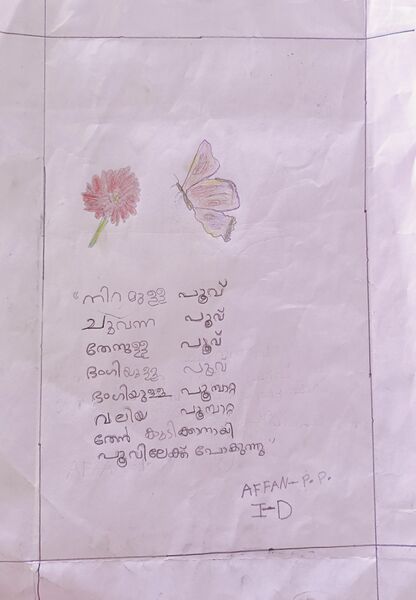 "നിറമുള്ള പൂവ്
ചുവന്ന പൂവ്
തേനുള്ള പൂവ്
ഭംഗിയുള്ള പൂവ്
ഭംഗിയുള്ള പൂമ്പാറ്റ
വലിയ പൂമ്പാറ്റ
തേൻ കുടിക്കാനായി
പൂവിലേക്ക് പോകുന്നു"
AFFAN-P.P.
I-D